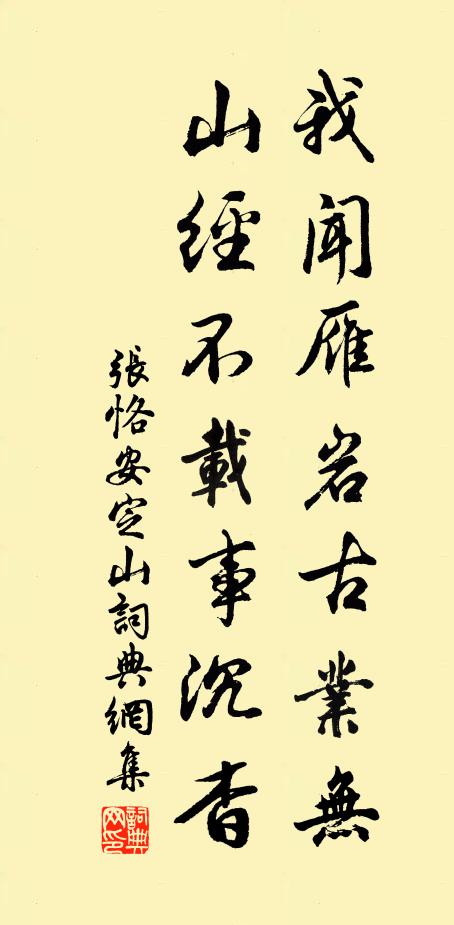 我闻雁岩古業無
山經不載事沉杳
張恪安定山詞典網集
詞典网印